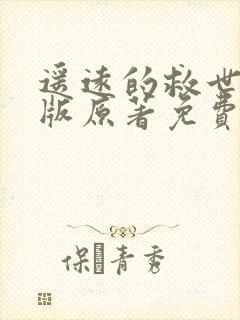 遥远的救世
版原著免費
保青秀